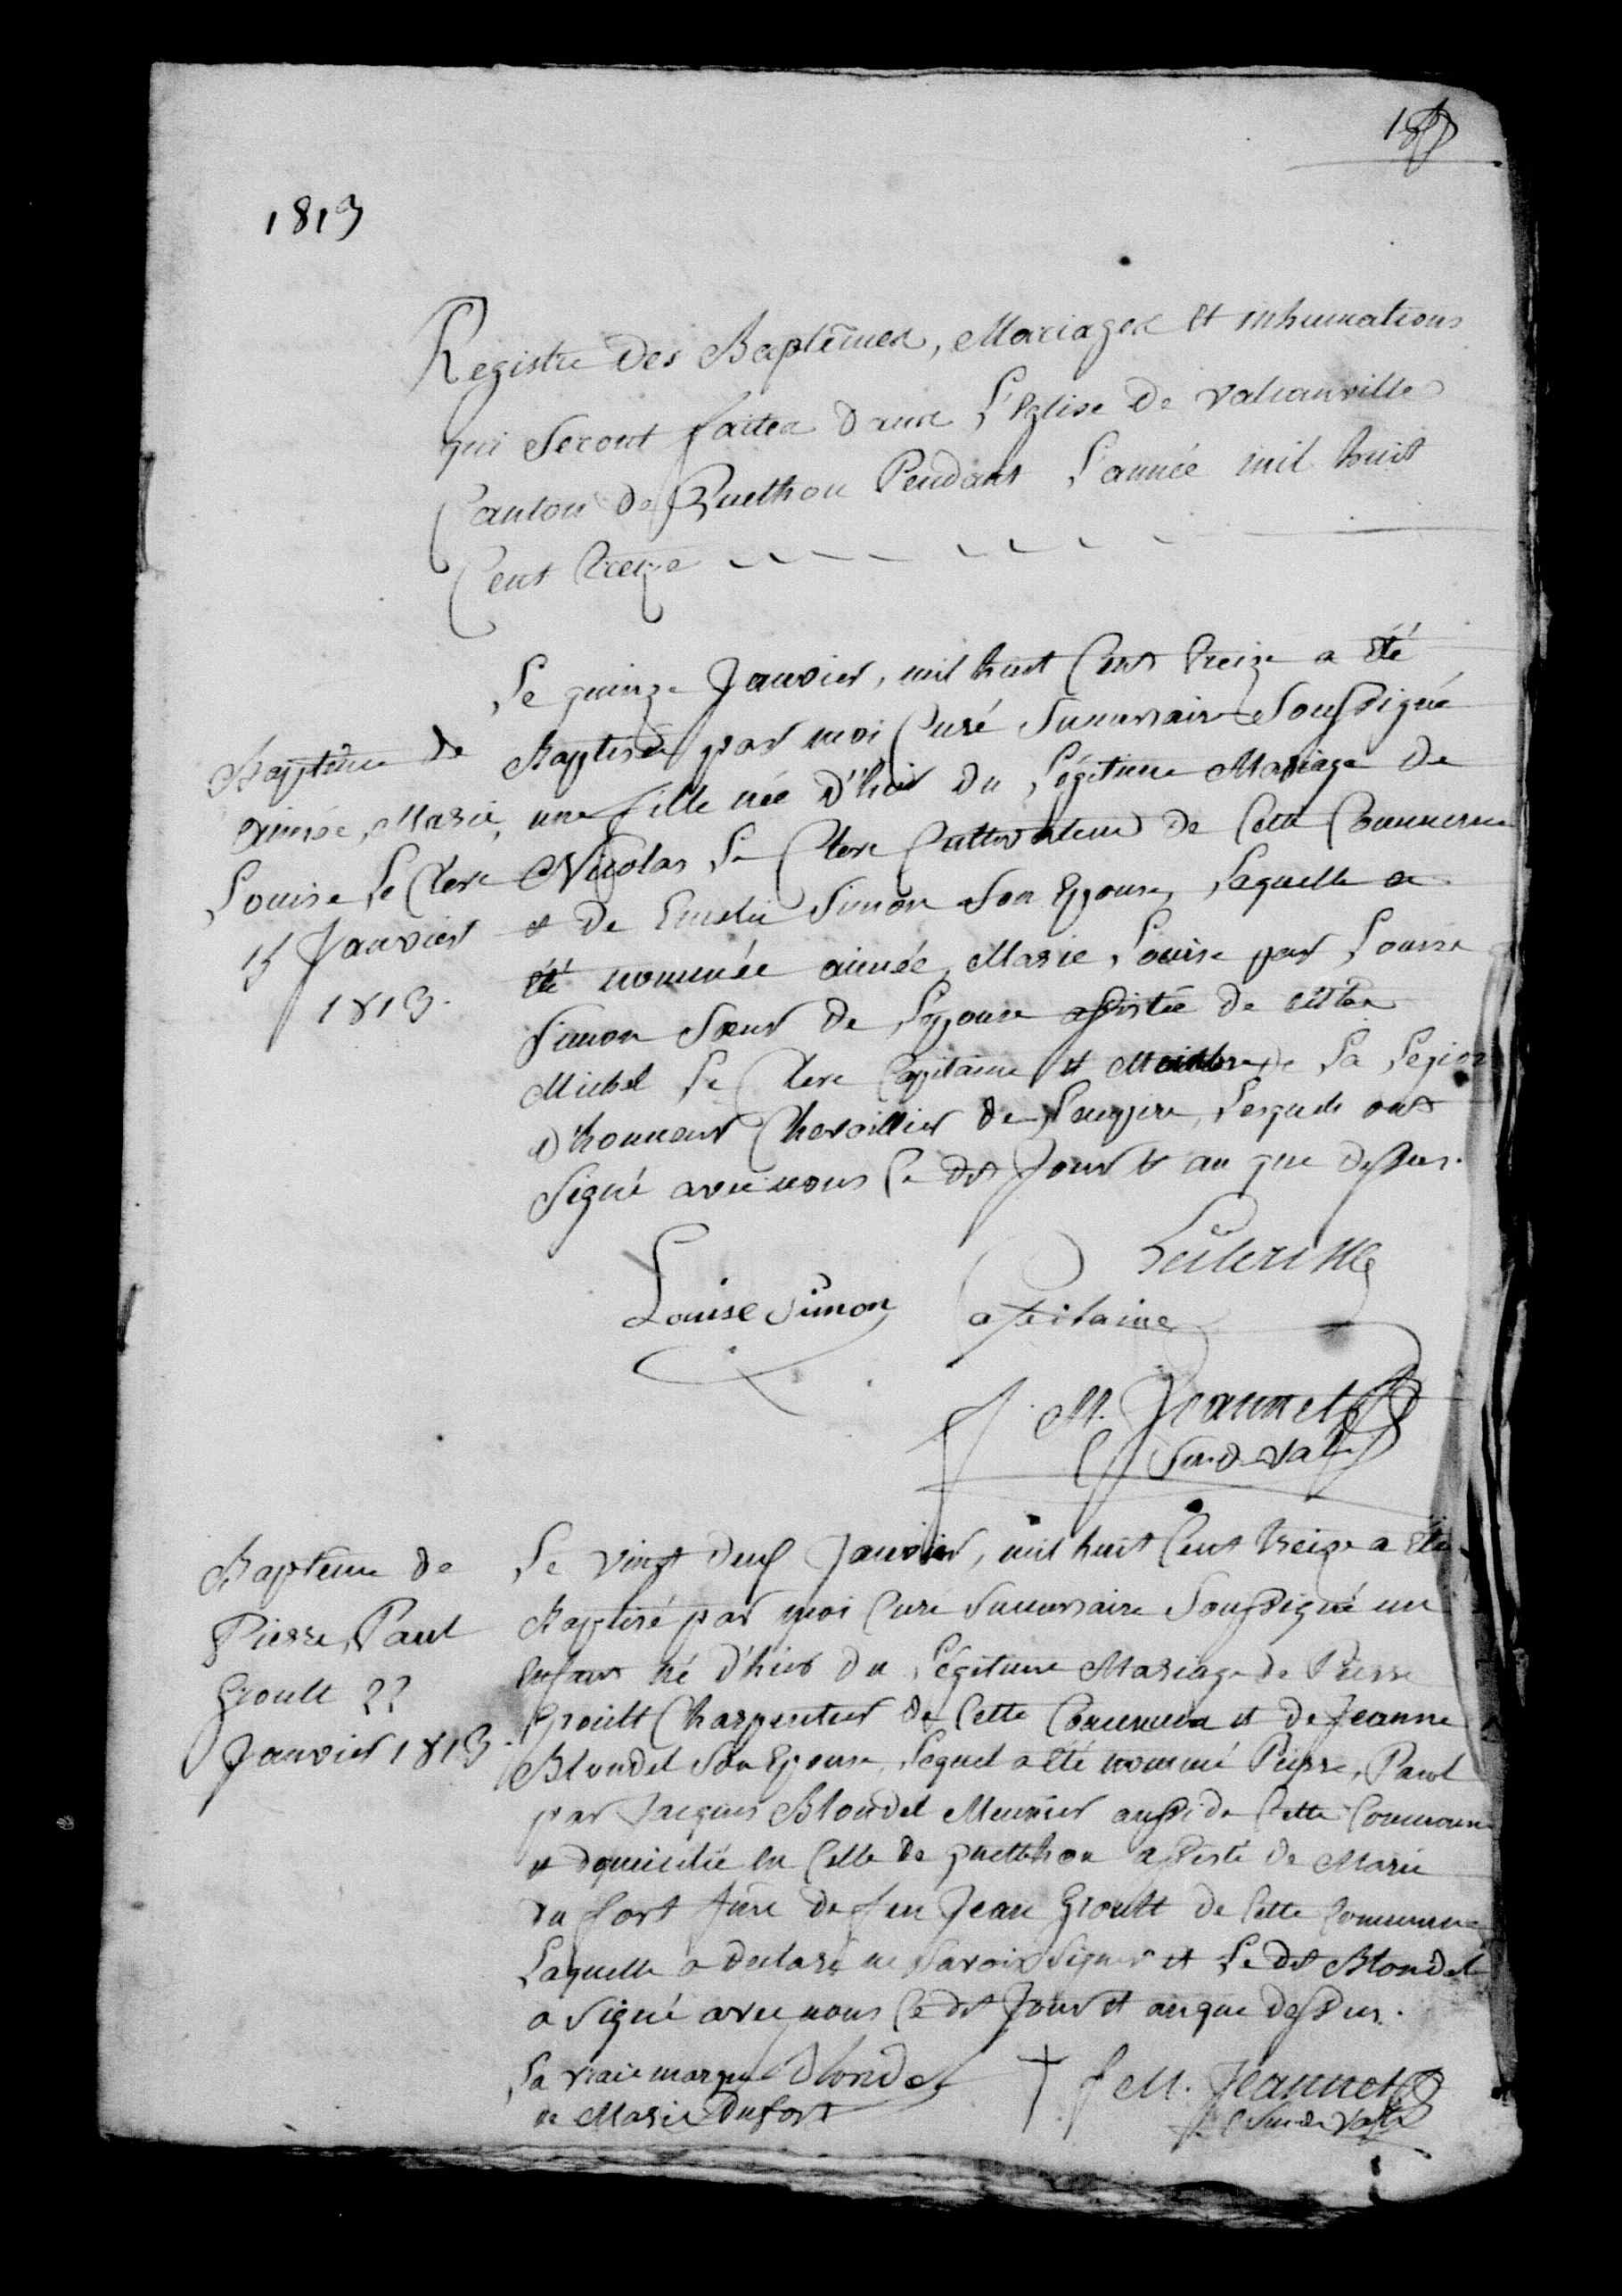 1813
Registre des Baptêmes, Mariages et inhumations
qui seront faites dans l'Eglise de valcanville
Canton de Quethou Pendant l'année mil huit
Cent treize
Baptême de
aimée, Marie,
Louise Le Clerc
15 Janvier
1813.
Le quinze Janvier, mil huit Cent treize a été
Baptisée par moi Curé Sucursaire Soussigné
une fille née d'hier du Légitime Mariage de
Nicolas Le Clerc Cultivateur de Cette Commune
et de Emelie Simon Son Epouse, Laquelle a
été nommée aimée, Marie, Louise par Louise
Simon Sœur de L'epouse assistée de
Michel Le Clerc Capitaine et Membre de La Légion
d'honneur Chevaillier de L'empire, Lesquels ont
Signé avec nous Ce dit Jour et an que dessus.
Louise Simon
Capitaine
f. M. Jeannet
C Sur de Val
Baptême de
Pierre, Paul
Groult 22
Janvier 1813.
Le vingt deux Janvier, mil huit Cent treize a été
Baptisé par moi Curé Sucursaire Soussigné un
Enfant né d'hier du Légitime Mariage de Pierre
Groult Charpentier de Cette Commune et de Jeanne
Blondel Son Epouse, Lequel a été nommé Pierre, Paul
par Jacques Blondel Meunier aussi de Cette Commune
et domicilié en Celle de quethou assisté de Marie
du fort de feu Jean Groult de Cette Commune
Laquelle a déclaré ne Savoir Signer et Le dit Blondel
a Signé avec nous Ce dit Jour et an que dessus.
La vraie marque Blondel † f M. Jeannet
de Marie Dufort C Sur de Val